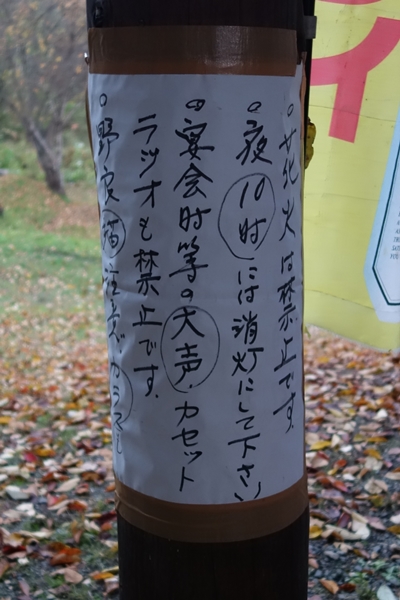 ○花火は禁止です.
○夜10时には消灯にして下さい
○宴会时等の大声.カセット
ラジオも禁止です.
○野良猫注意.カラスも
イ